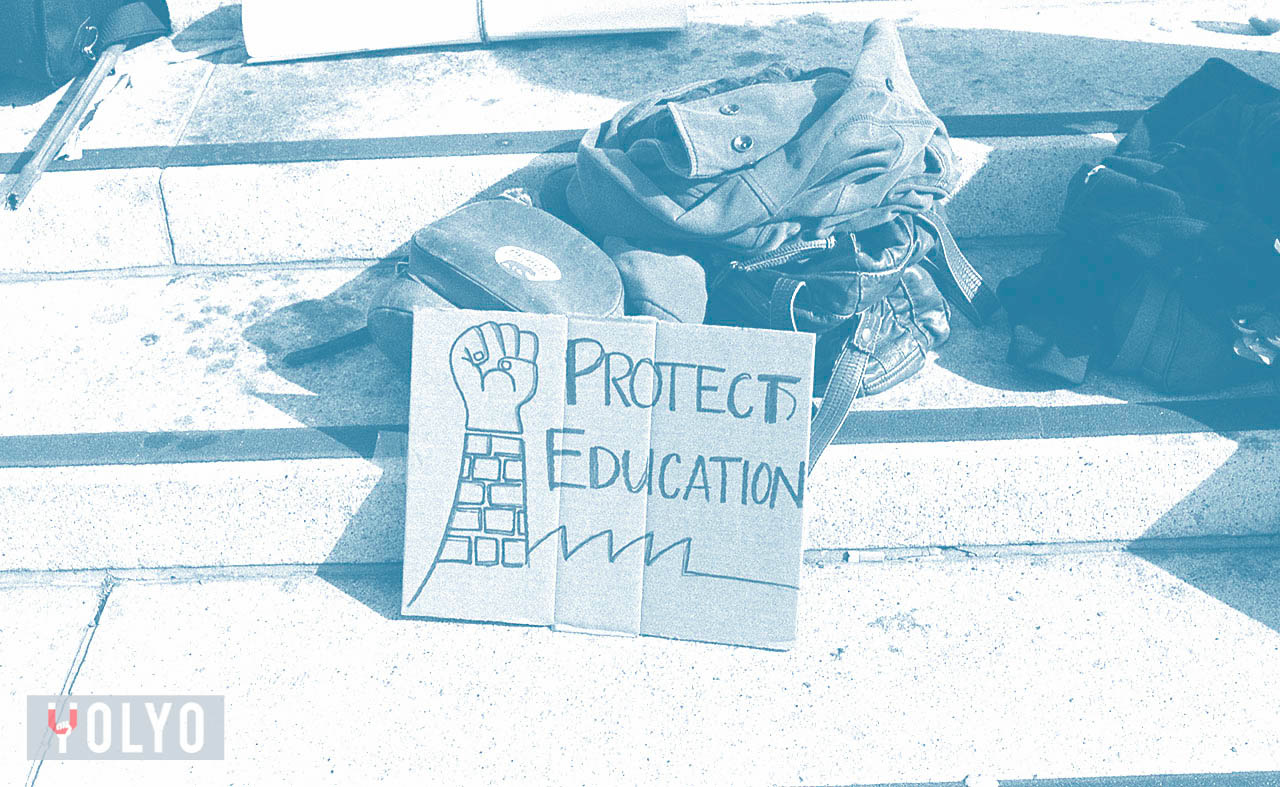 PROTECT
EDUCATION
YOLYO